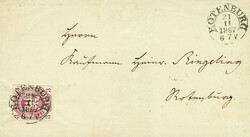 ROTENBURG
21
11
1867
6 7 V
Herrn
Kaufmann Heinr. Ringeling
Rotenburg
ROTENBURG